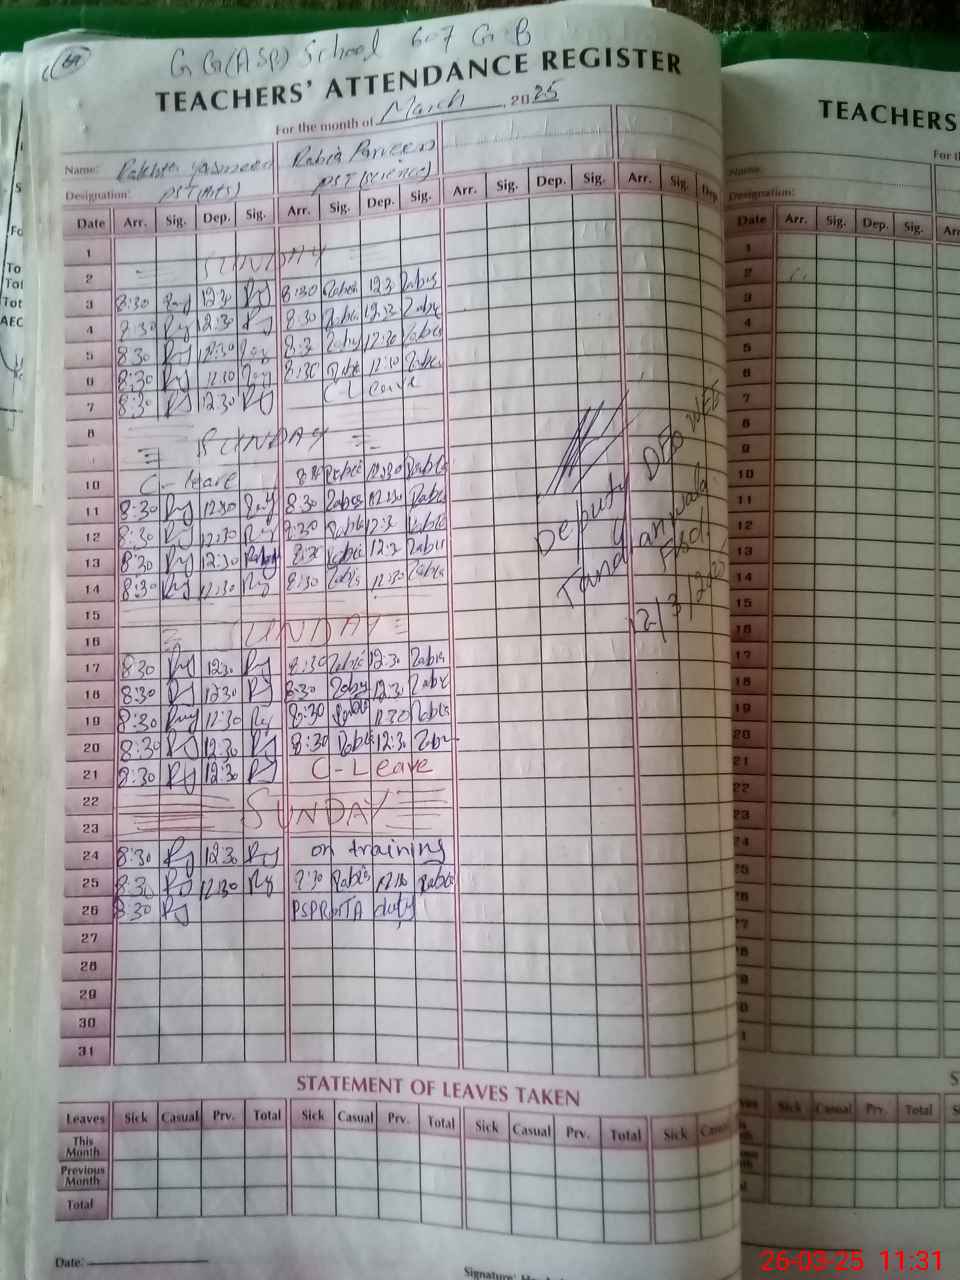 G G(ASP) School 607 G.B
TEACHERS' ATTENDANCE REGISTER
For the month of March, 2025
Name: Yasmeen Rabia Parveen
Designation: PST(Arts) PST(Science)
Date Arr. Sig. Dep. Sig. Arr. Sig. Dep. Sig. Arr. Sig. Dep. Sig. Arr. Sig. Dep.
1
2 SUNDAY
3 8:30 Ry 12:30 Ry 8:30 Rabia 12:30 Rabia
4 8:30 Ry 12:30 Ry 8:30 Rabia 12:30 Rabia
5 8:30 Ry 12:30 Ry 8:30 Rabia 12:30 Rabia
6 8:30 Ry 12:30 Ry 8:30 Rabia 12:30 Rabia
7 8:30 Ry 12:30 Ry C-Leave
8
SUNDAY
10 C-leave 8:30 Rabia 12:30 Rabia
11 8:30 Ry 12:30 Ry 8:30 Rabia 12:30 Rabia
12 8:30 Ry 12:30 Ry 8:30 Rabia 12:30 Rabia
13 8:30 Ry 12:30 8:30 Rabia 12:30 Rabia
14 8:30 Ry 12:30 Ry 8:30 Rabia 12:30 Rabia
15
16 SUNDAY
17 8:30 Ry 12:30 Ry 8:30 Rabia 12:30 Rabia
18 8:30 Ry 12:30 Ry 8:30 Rabia 12:30 Rabia
19 8:30 Ry 12:30 Ry 8:30 Rabia 12:30 Rabia
20 8:30 Ry 12:30 Ry 8:30 Rabia 12:30 Rabia
21 8:30 Ry 12:30 Ry C-Leave
22
23 SUNDAY
24 8:30 Ry 12:30 Ry on training
25 8:30 Ry 12:30 Ry 8:30 Rabia 12:30 Rabia
26 8:30 Ry duty
27
28
29
30
31
Deputy DEO WEE
Tandlianwala
Fsd.
12/3/2025
STATEMENT OF LEAVES TAKEN
Leaves Sick Casual Prv. Total Sick Casual Prv. Total Sick Casual Prv. Total Sick
This Month
Previous Month
Total
Date:
Signature:
TEACHERS
Name:
Designation:
Date Arr. Sig. Dep. Sig.
1
2
3
4
5
6
7
8
9
10
11
12
13
14
15
16
17
18
19
20
21
22
23
24
25
26
Sick Casual Prv. Total
26-03-25 11:31